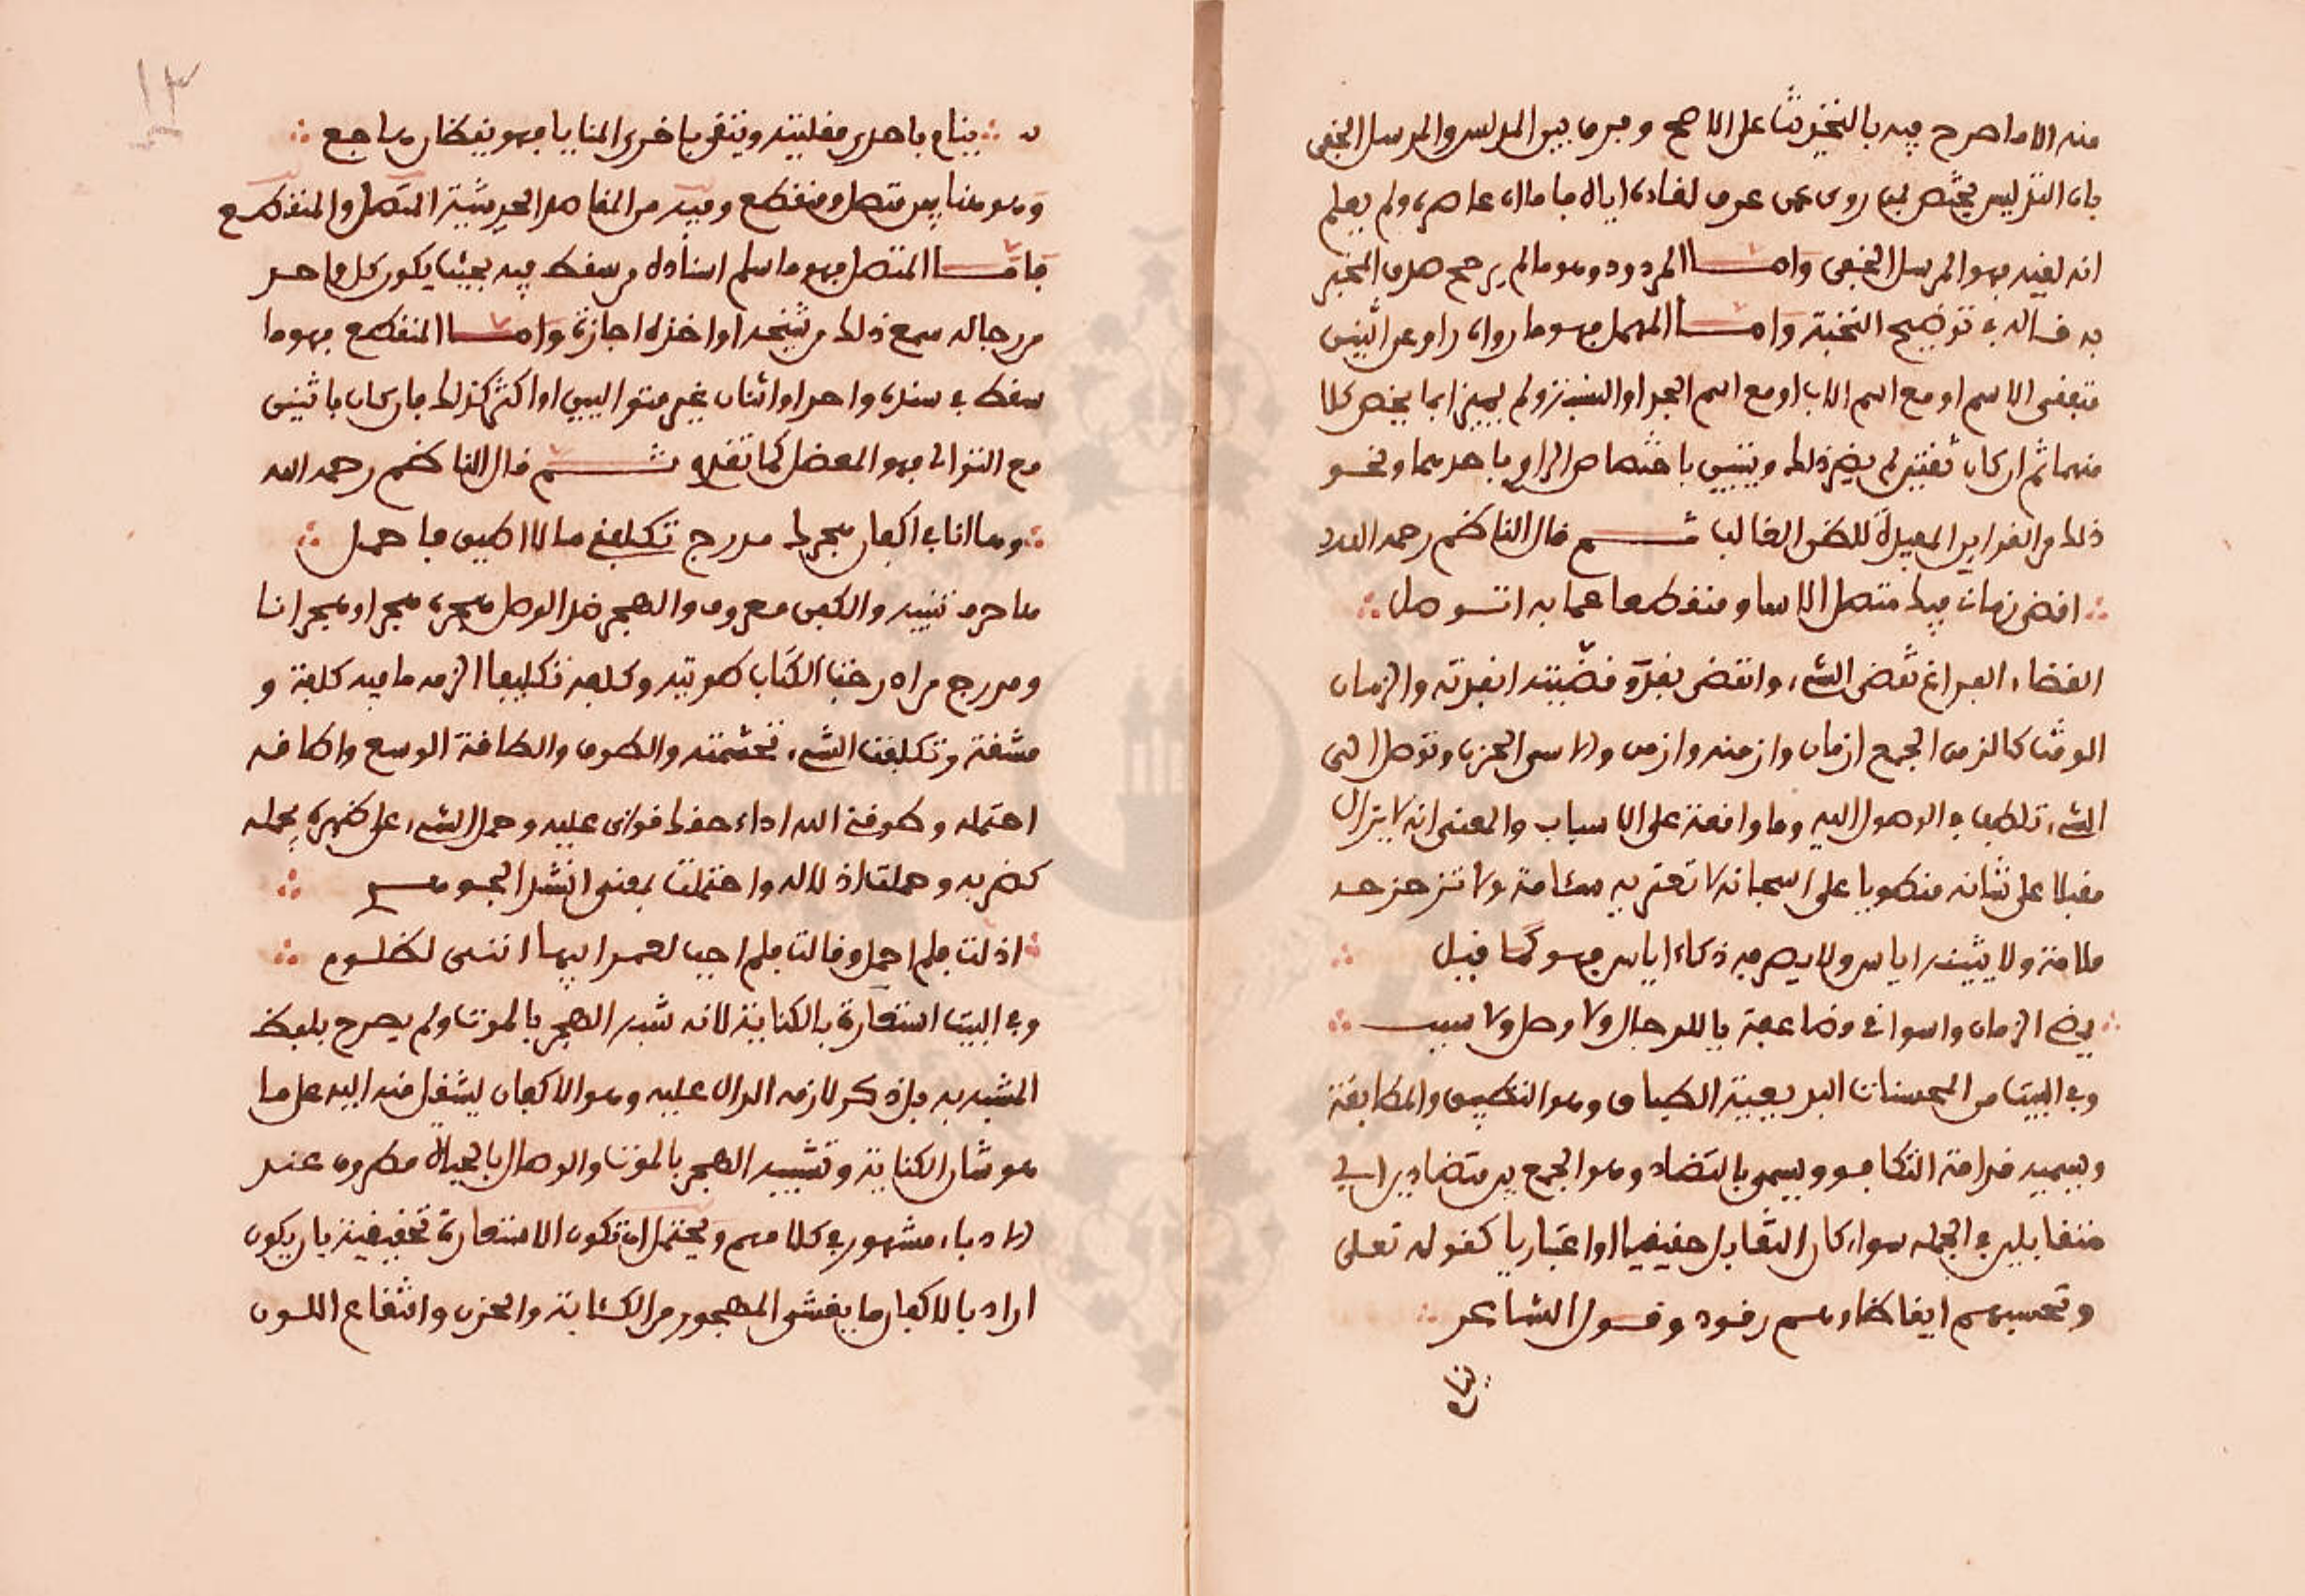 منه الا ما صرح فيه بالتحديث على الاصح وفرق بين المدلس والمرسل الخفي
بان التدليس يختص بمن روى عمن عرف لقاءه اياه فاما ان عاصره ولم يعلم
انه لقيه فهو المرسل الخفي وامـــا المردود وهو ما لم يرجح صدق المخبر
به قـاله في توضيح النخبة وامـــا المهمل فهو ما رواه راو عن اثنين
متفقي الاسم او مع اسم الاب او مع اسم الجد او النسبة ولم يميز ابما يخص كلا
منهما ثم ان كان ثقتين لم يضر ذلك ويتبين باختصاص الراوي باحدهما ونحو
ذلك من القراين المفيدة للظن الغالب ثـــم قال الناظم رحمه الله
افضى زمان فيك متصل الاسا ومنقطعا عما به اتـوصل
القضاء الفراغ تقضى الشيء وانقضى نفد وقضيته انفدته والزمان
الوقت كالزمن الجمع ازمان وازمنه وازمن والاسى الحزن وتوصل الى
الشيء تلطف في الوصول اليه وما واقعة على الاسباب والمعنى انه لا يزال
مقبلا على شانه منطويا على اشجانه لا تعتريه سئامة ولا تزحزحه
ملامة ولا يثنيه اياس ولا يصرفه ذكاء اياس فهو كما قيل
يمضي الزمان واسواقي مضاعفة يا للرجال ولا وصل ولا سبب
وفي البيت من المحسنات البديعية الطباق وهو التطبيق والمطابقة
ويسميه قدامة التكافو ويسمى بالتضاد وهو الجمع بين متضادين اي
متقابلين في الجملة سواء كان التقابل حقيقيا او اعتباريا كقوله تعلى
وتحسبهم ايقاظا وهم رقود وقـول الشاعر
ينام
ينام باحدى مقلتيه ويتقي باخرى المنايا فهو يقظان هاجع
وهو هنا بين متصل ومنقطع وفيه من المقاصد الحديثية المتصل والمنقطع
فامـــا المتصل فهو ما سلم اسناده من سقط فيه بحيث يكون كل واحد
من رجاله سمع ذلك من شيخه او اخذه اجازة وامـــا المنقطع فهو ما
سقط في سنده واحد او اثنان غير متواليين او اكثر كذلك فان كان باثنين
مع التوالي فهو المعضل كما تقدم ثـــم قال الناظم رحمه الله
وها انا في اكفان هجرك مدرج تكلفني ما لا اطيق فاحمل
ها حرف تنبيه والكفن معروف والهجر ضد الوصل هجره هجرا وهجرانا
ومدرج من ادرجت الكتاب طويته وكلفه تكليفا الزمه ما فيه كلفة و
مشقة وتكلفت الشيء تجشمته والطوق والطاقة الوسع واطاقه
احتمله وطوقني الله اداء حقك قواني عليه وحمل الشيء على ظهره يحمله
كضربه وحملت ادلاله واحتملت بمعنى انشد الجوهـــري
ادلت فلم احمل وقالت فلم اجب لعمر ابيها انني لظلوم
وفي البيت استعارة بالكناية لانه شبه الهجر بالموت ولم يصرح بلفظ
المشبه به بل ذكر لازمه الدال عليه وهو الاكفان لينتقل منه اليه على ما
هو شان الكناية وتشبيه الهجر بالموت والوصال بالحياة مطروق عند
الادباء مشهور في كلامهم ويحتمل ان تكون الاستعارة تحقيقية بان يكون
اراد بالاكفان ما يغشى المهجور من الكئابة والحزن وانتقاع اللون